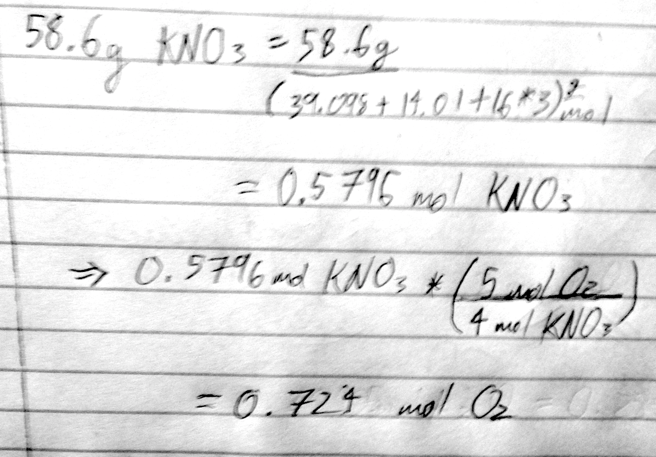 58.6g KNO3 = 58.6g
(39.098 + 14.01 + 16*3) g/mol
= 0.5796 mol KNO3
⇒ 0.5796 mol KNO3 * (5 mol O2 / 4 mol KNO3)
= 0.724 mol O2